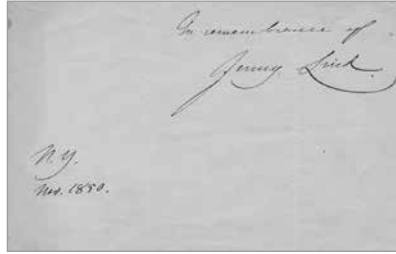 In remembrance of
Jenny Lind.
N.Y.
Nov. 1850.